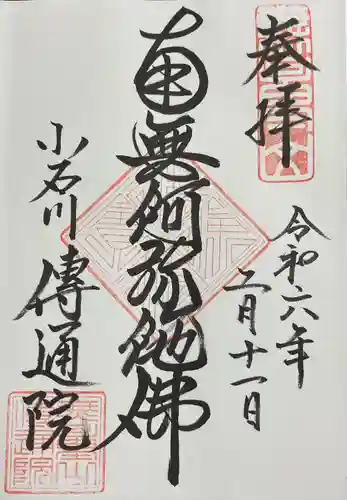 奉拝
令和六年
五月十一日
南無阿弥陀佛
小石川
傳通院